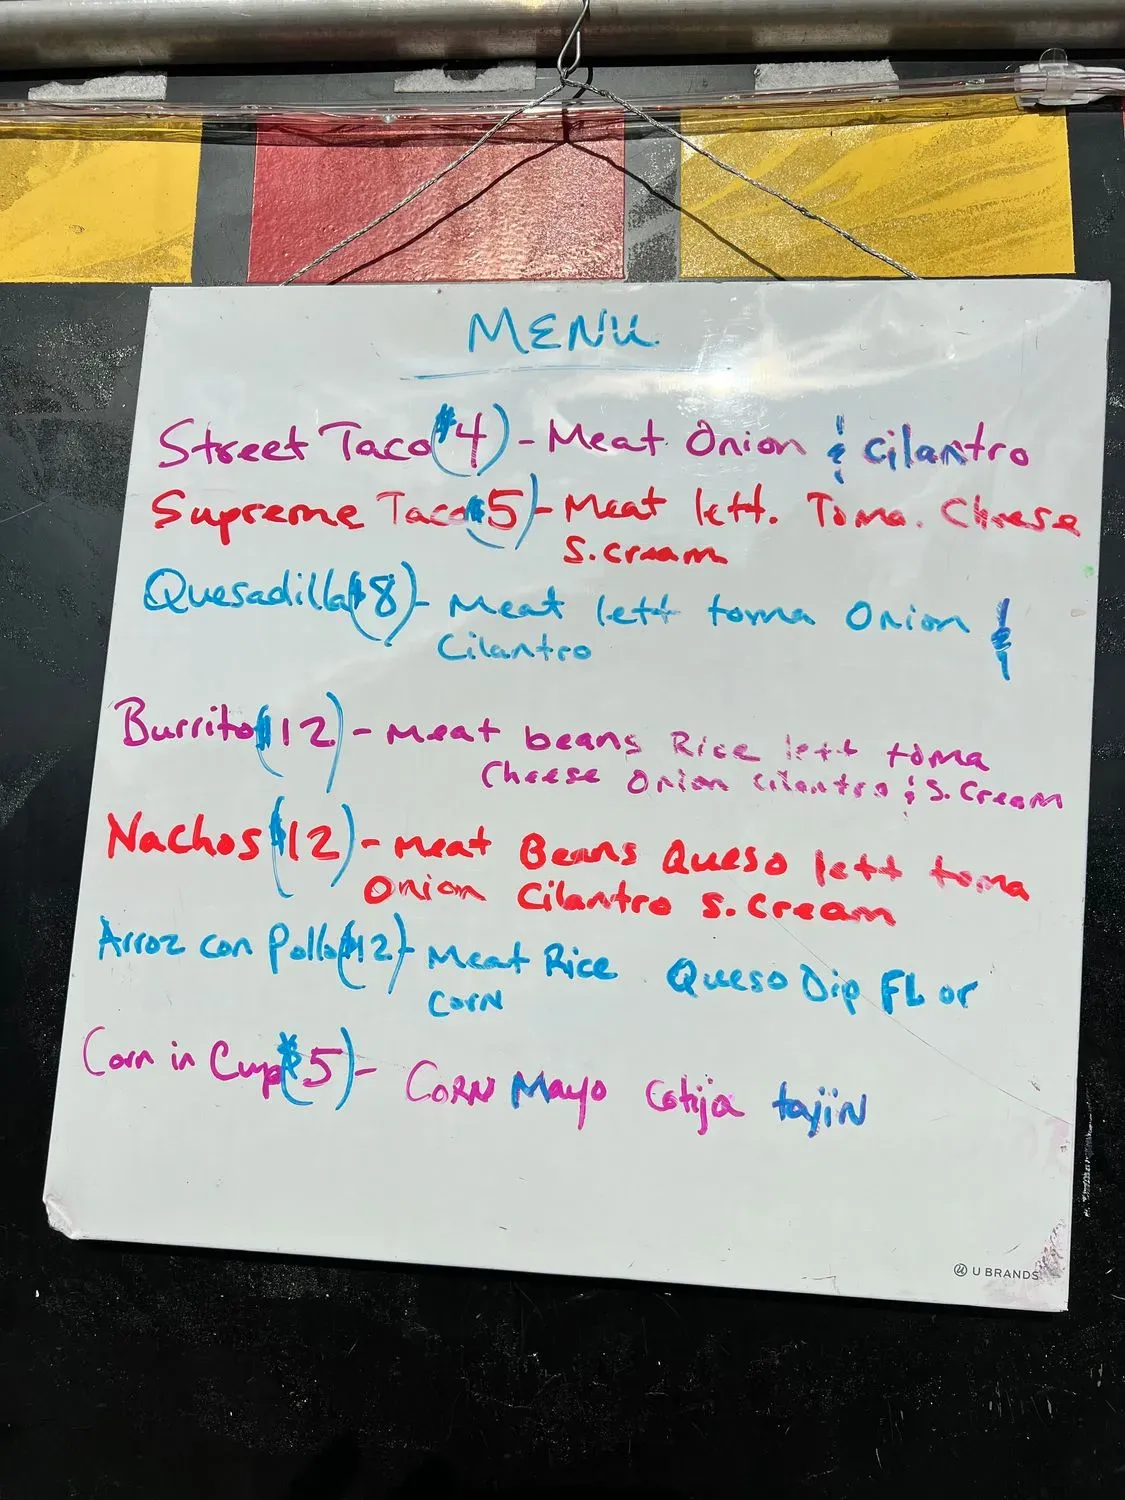 MENU
Street Taco($4) - Meat Onion & cilantro
Supreme Taco($5) - Meat lett. Toma. Cheese
S.cream
Quesadilla($8) - Meat lett toma Onion &
Cilantro
Burrito($12) - Meat beans Rice lett toma
Cheese Onion cilantro & S.Cream
Nachos($12) - Meat Beans Queso lett toma
Onion Cilantro S.cream
Arroz con Pollo($12) - Meat Rice Queso Dip FL or
Corn
Corn in Cup($5) - Corn Mayo Cotija tajin
U BRANDS